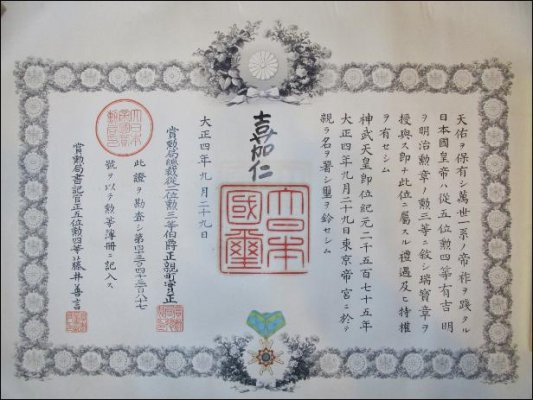 天佑ヲ保有シ萬世一系ノ帝祚ヲ踐タル
日本國皇帝ハ從五位勲四等有吉明
ヲ明治勲章ノ勲三等ニ敘シ瑞寶章ヲ
授與ス即チ此位ニ屬スル禮遇及ヒ特權
ヲ有セシム
神武天皇即位紀元二千五百七十五年
大正四年九月二十九日東京帝宮ニ於テ
親ラ名ヲ署シ璽ヲ鈐セシム
嘉仁
大日本國璽
大正四年九月二十九日
賞勲局總裁從二位勲三等伯爵正親町實正
此證ヲ勘査シ第
號ヲ以テ勲等簿冊ニ記入ス
賞勲局書記官正五位勲四等藤井善言